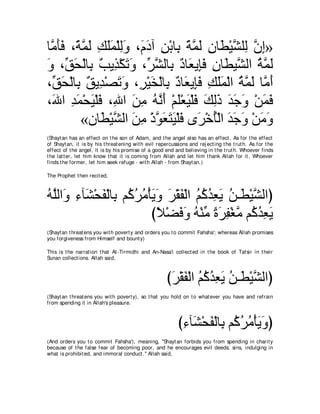 «إِنَّ لِلشَّيْطَانِ لَمَّةً بِابْنِ آدَمَ، وَلِلْمَلَكِ لَمَّةً، فَأَمَّا
لَمَّةُ الشَّيْطَانِ فَإِيعَادٌ بِالشَّرِّ، وَتَكْذِيبٌ بِالْحَقِّ، وَ
أَمَّا لَمَّةُ الْمَلَكِ فَإِيعَادٌ بِالْخَيْرِ، وَتَصْدِيقٌ بِالْحَقِّ،
فَمَنْ وَجَدَ ذلِكَ فَلْيَعْلَمْ أَنَّهُ مِنَ اللهِ، فَلْيَحْمَدِ اللهَ،
وَمَنْ وَجَدَ الْأُخْرَى فَلْيَتَعَوَّذْ مِنَ الشَّيْطَانِ»
(Shaytan has an effect on the son of Adam, and the angel also has an effect. As for the effect
of Shaytan, it is by his threatening with evil repercussions and rejecting the truth. As for the
effect of the angel, it is by his promise of a good end and believing in the truth. Whoever finds
the latter, let him know that it is coming from Allah and let him thank Allah for it. Whoever
finds the former, let him seek refuge - with Allah - from Shaytan.)
The Prophet then recited,
(الشَّيْطَـنُ يَعِدُكُمُ الْفَقْرَ وَيَأْمُرُكُم بِالْفَحْشَآءِ وَاللَّهُ
يَعِدُكُم مَّغْفِرَةً مِّنْهُ وَفَضْلاً)
(Shaytan threatens you with poverty and orders you to commit Fahsha'; whereas Allah promises
you forgiveness from Himself and bounty)
This is the narration that At-Tirmidhi and An-Nasa'i collected in the book of Tafsir in their
Sunan collections. Allah said,
(الشَّيْطَـنُ يَعِدُكُمُ الْفَقْرَ)
(Shaytan threatens you with poverty), so that you hold on to whatever you have and refrain
from spending it in Allah's pleasure.
(وَيَأْمُرُكُم بِالْفَحْشَآءِ)
(And orders you to commit Fahsha'), meaning, "Shaytan forbids you from spending in charity
because of the false fear of becoming poor, and he encourages evil deeds, sins, indulging in
what is prohibited, and immoral conduct." Allah said,